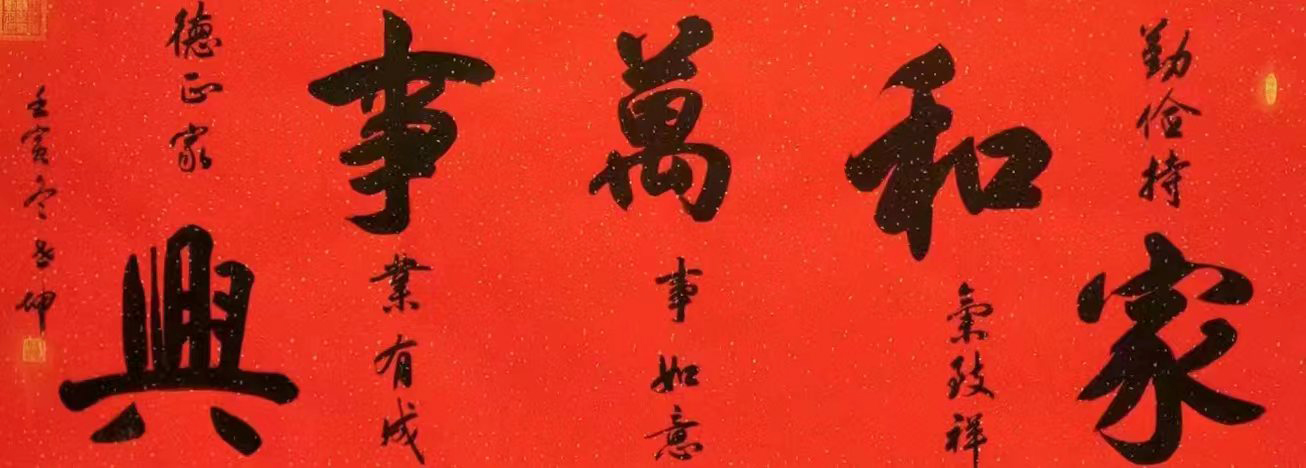 勤俭持家
和氣致祥
萬事如意
事業有成
德正家興
壬寅冬 坤